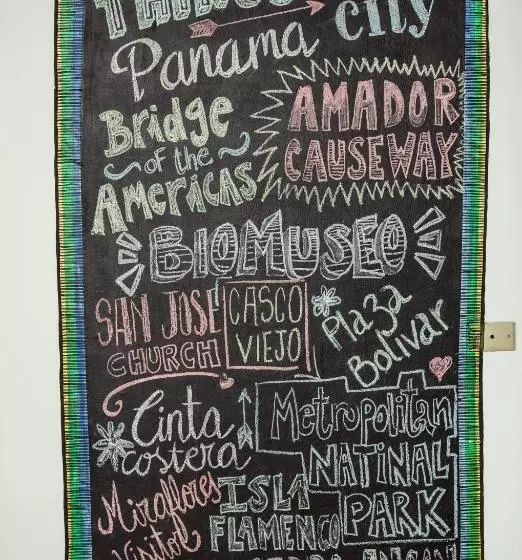 THINGS
city
Panama
Bridge
of the
Americas
AMADOR
CAUSEWAY
BIOMUSEO
SAN JOSE
CHURCH
CASCO
VIEJO
Plaza
Bolivar
Cinta
costera
Metropolitan
NATINALL
PARK
Miraflores
Visitor
ISLA
FLAMENCO